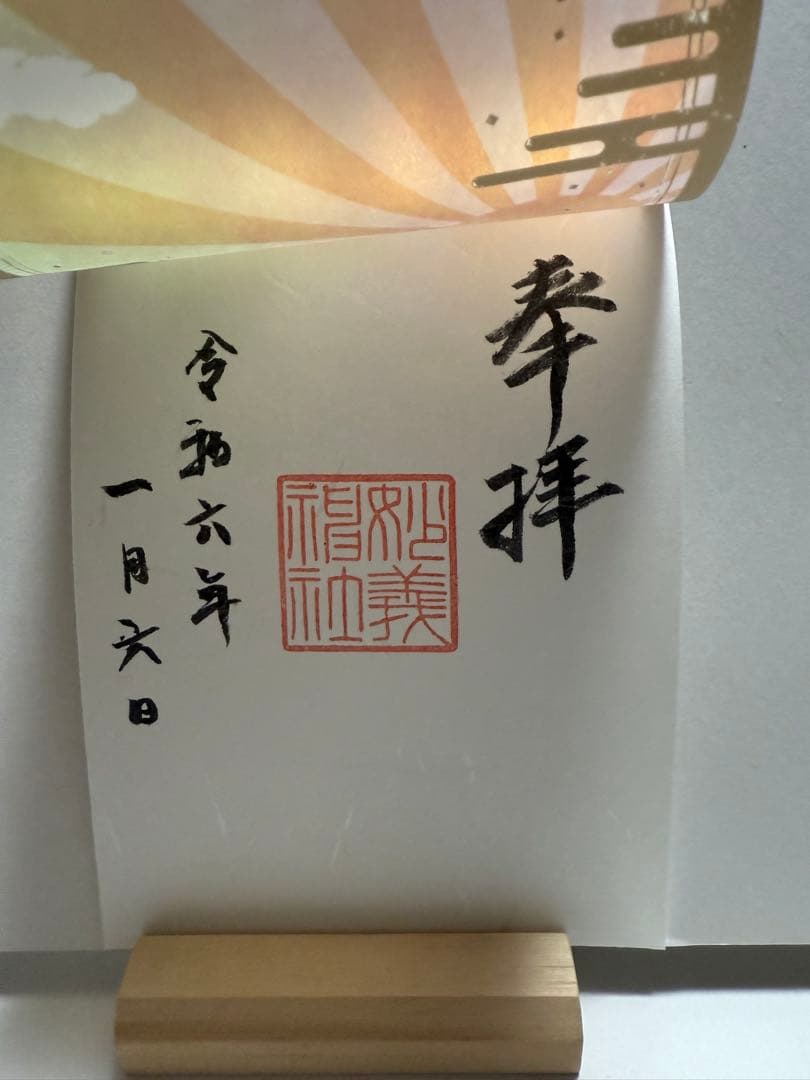 奉拝
妙義
神社
令和六年
一月六日